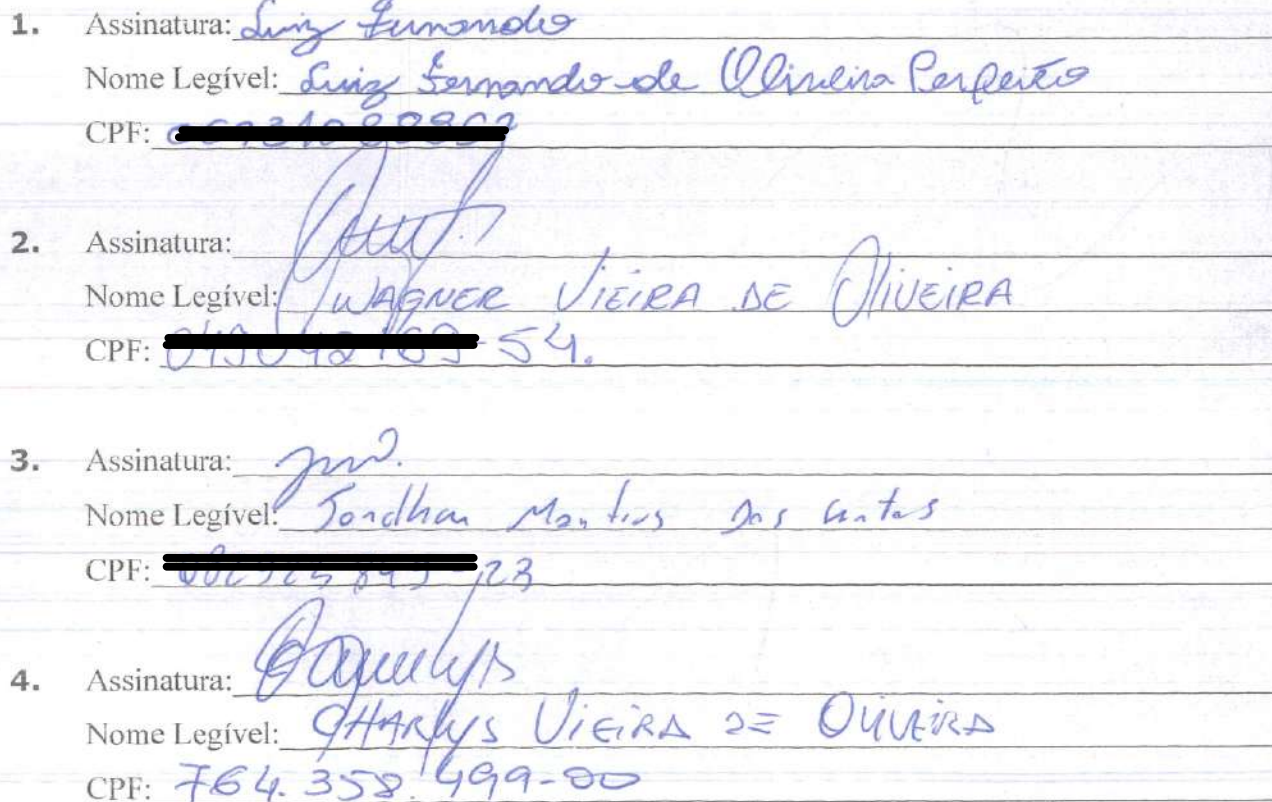 1. Assinatura: Luiz Fernando
Nome Legível: Luiz Fernando de Oliveira Perfeito
CPF:
2. Assinatura:
Nome Legível: WAGNER VIEIRA DE OLIVEIRA
CPF: 54.
3. Assinatura:
Nome Legível: Jonathan Martins dos
CPF: 23
4. Assinatura:
Nome Legível: CHARLYS VIEIRA DE OLIVEIRA
CPF: 764.358.499-00